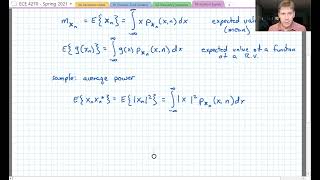 ECE 4270 - Spring 2021
m_xn = E{x_n} = ∫_{-∞}^{∞} x p_xn(x,n) dx expected value (mean)
E{g(x_n)} = ∫_{-∞}^{∞} g(x) p_xn(x,n) dx expected value of a function of a R.V.
sample: average power
E{x_n x_n*} = E{|x_n|²} = ∫_{-∞}^{∞} |x|² p_xn(x,n) dx